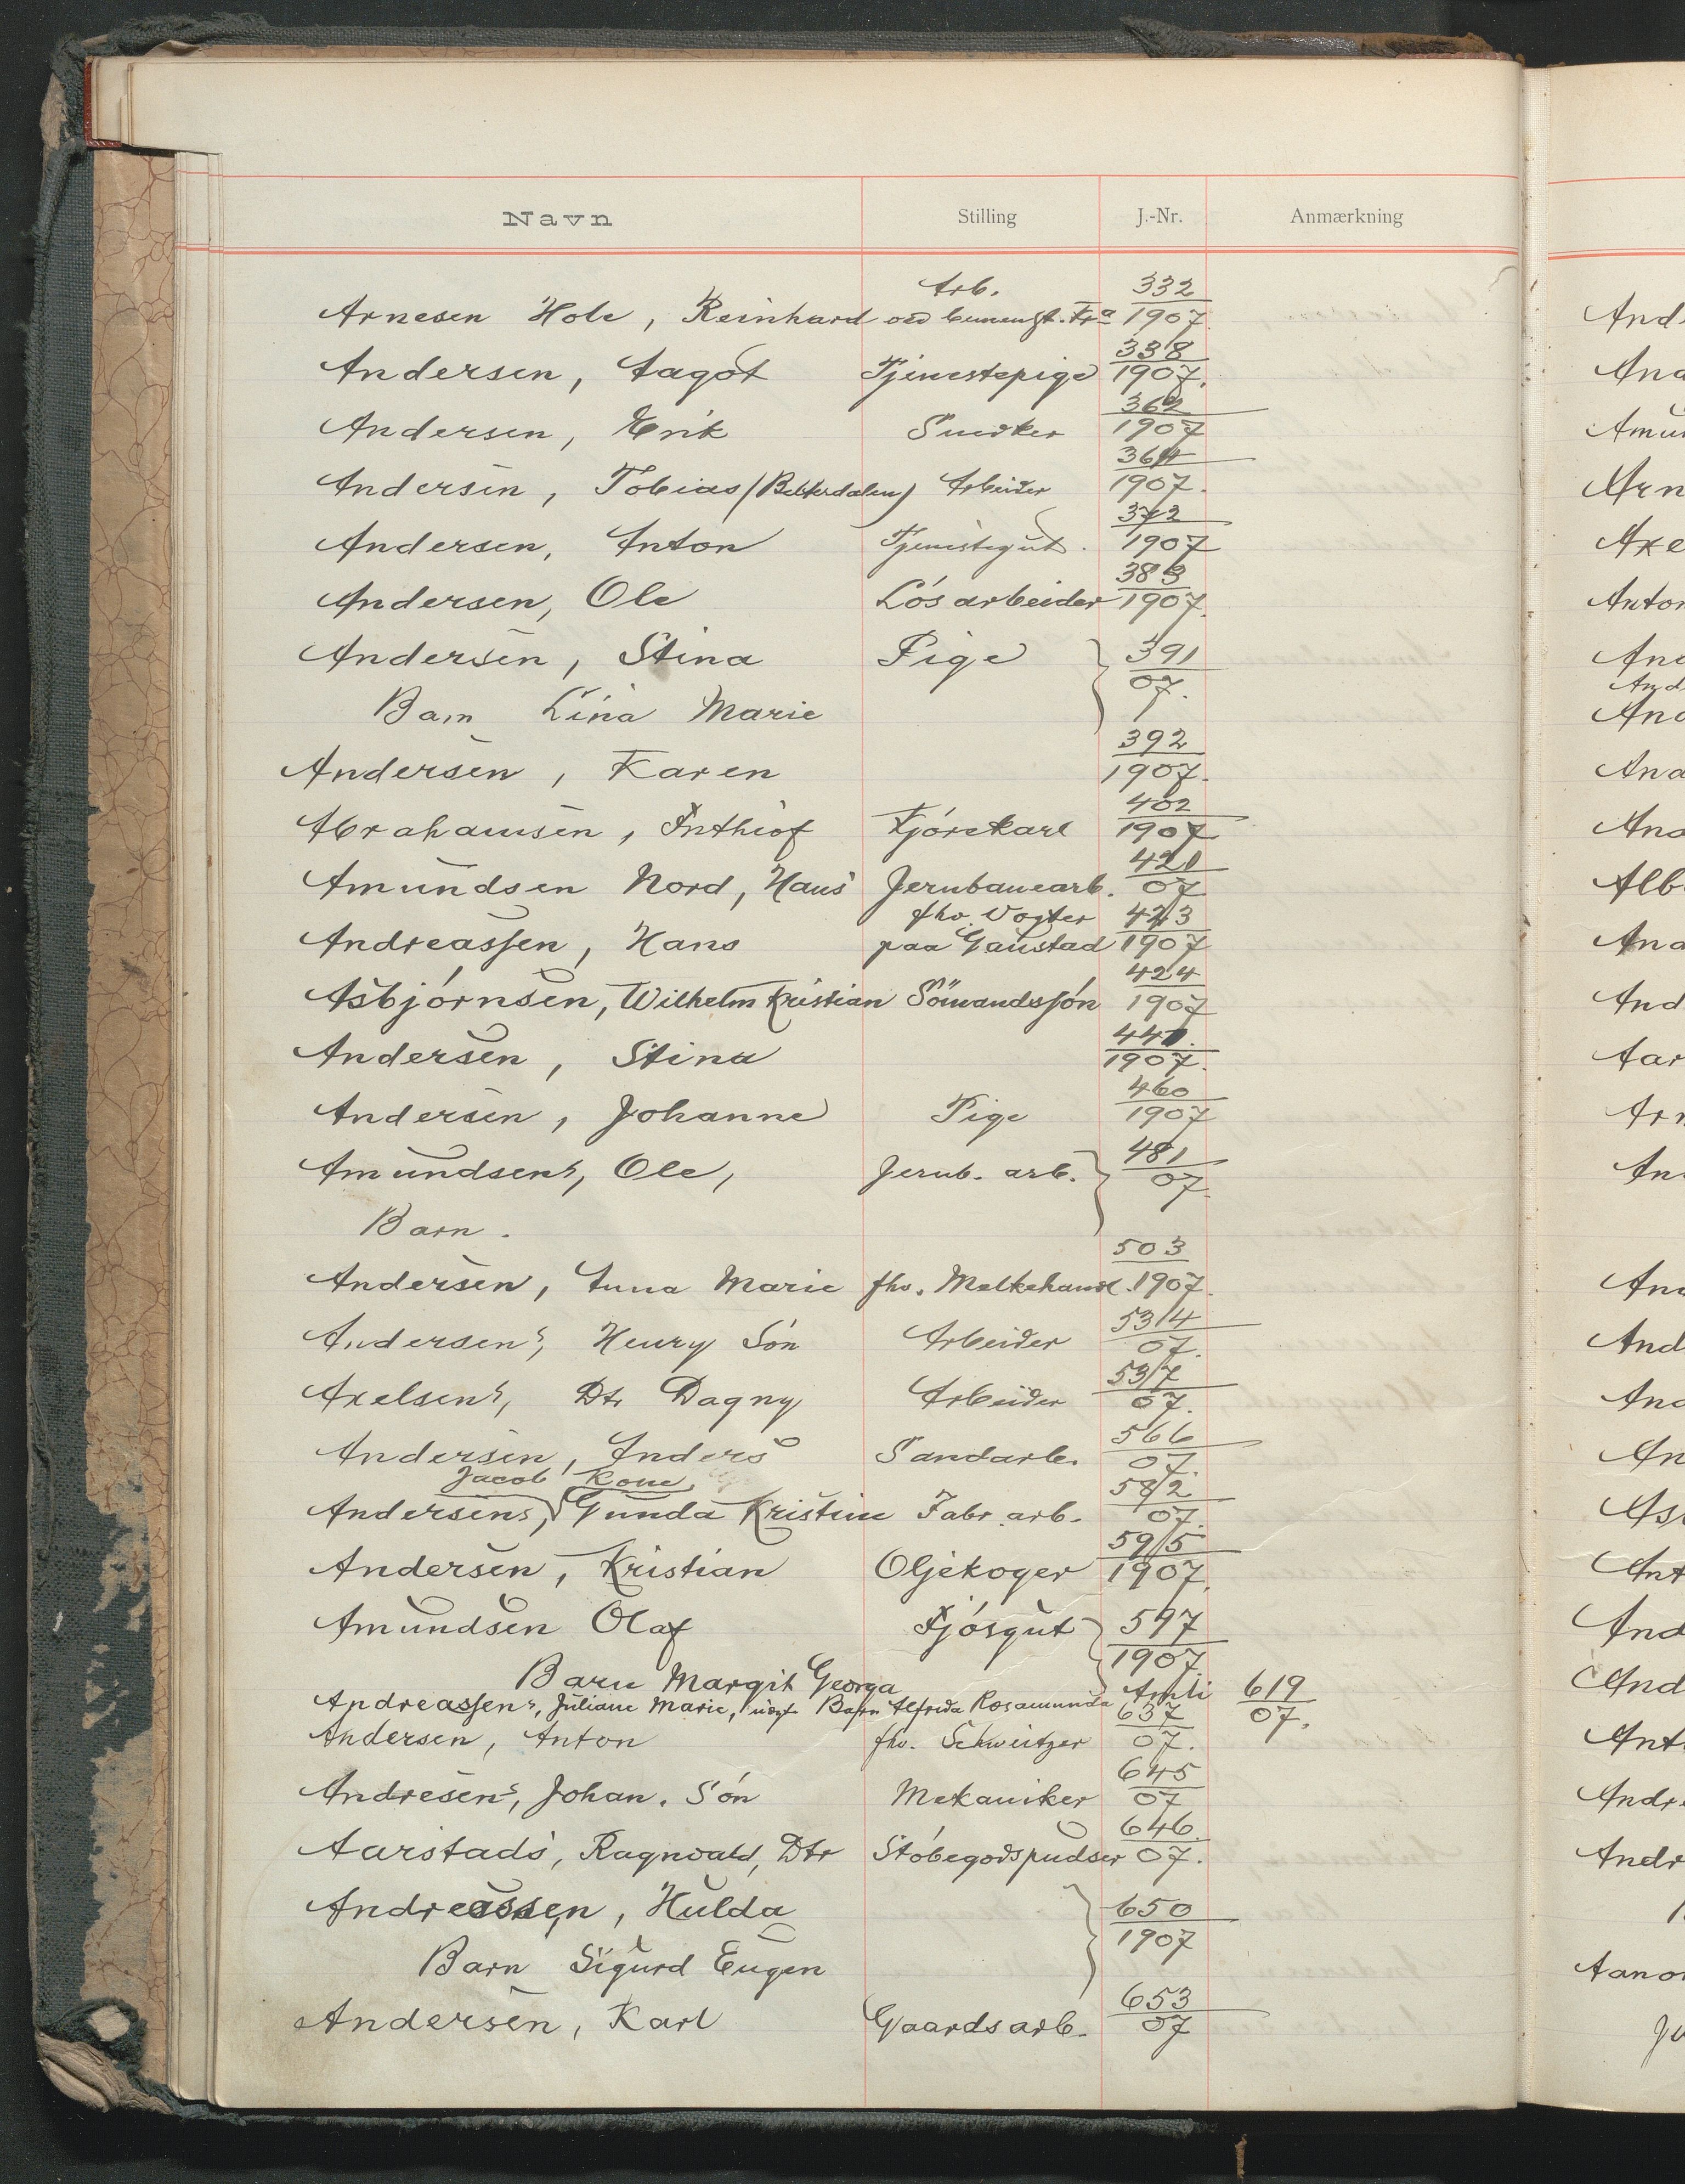 Navn Stilling J.-Nr. Anmærkning
Arb. 332
Arnesen Hole, Reinhard ved 1907.
338
Andersen, Aagot Tjenestepige 1907.
362
Andersen, Erik Snedker 1907
364
Andersen, Tobias (Bekkerdalen) Arbeider 1907.
372
Andersen, Anton Tjenestegut. 1907
383
Andersen, Ole Lósarbeider 1907.
Andersen, Stina Pige 391
07.
Barn Lina Marie
392
Andersen, Karen 1907.
402
Abrahamsen, Frithiof Kjórekarl 1907
421
Amundsen Nord, Hans Jernbanearb. 07
fhv. Vogter 423
Andreassen, Hans paa Gaustad 1907
424
Asbjórnsen, Wilhelm Kristian Sömandssón 1907
441.
Andersen, Stina 1907.
460
Andersen, Johanne Pige 1907
Amundsens, Ole, Jernb. arb. 481
07
Barn.
503
Andersen, Anna Marie fhv. Melkehandl. 1907.
534
Andersens, Henry Són Arbeider 07.
537
Axelsens, Dtr Dagny Arbeider 07.
566
Andersen, Anders Sandarb. 07.
Jacob Kone 582
Andersens, Gunda Kristine Fabr. arb. 07.
595
Andersen, Kristian Oljekoger 1907.
Amundsen Olaf Fjósgut 597
1907
Barn Margit Georga
Andreassens, Juliane Marie, ugt. Barn Alfrida Rosamunda Amli 619
07.
637
Andersen, Anton fhv. Schweitzer 07.
645
Andresens, Johan. Són Mekaniker 07
646.
Aarstads, Ragnvald, Dtr Stóbegodspudser 07.
Andreassen, Hulda 650
1907
Barn Sigurd Eugen
653
Andersen, Karl Gaardsarb. 07